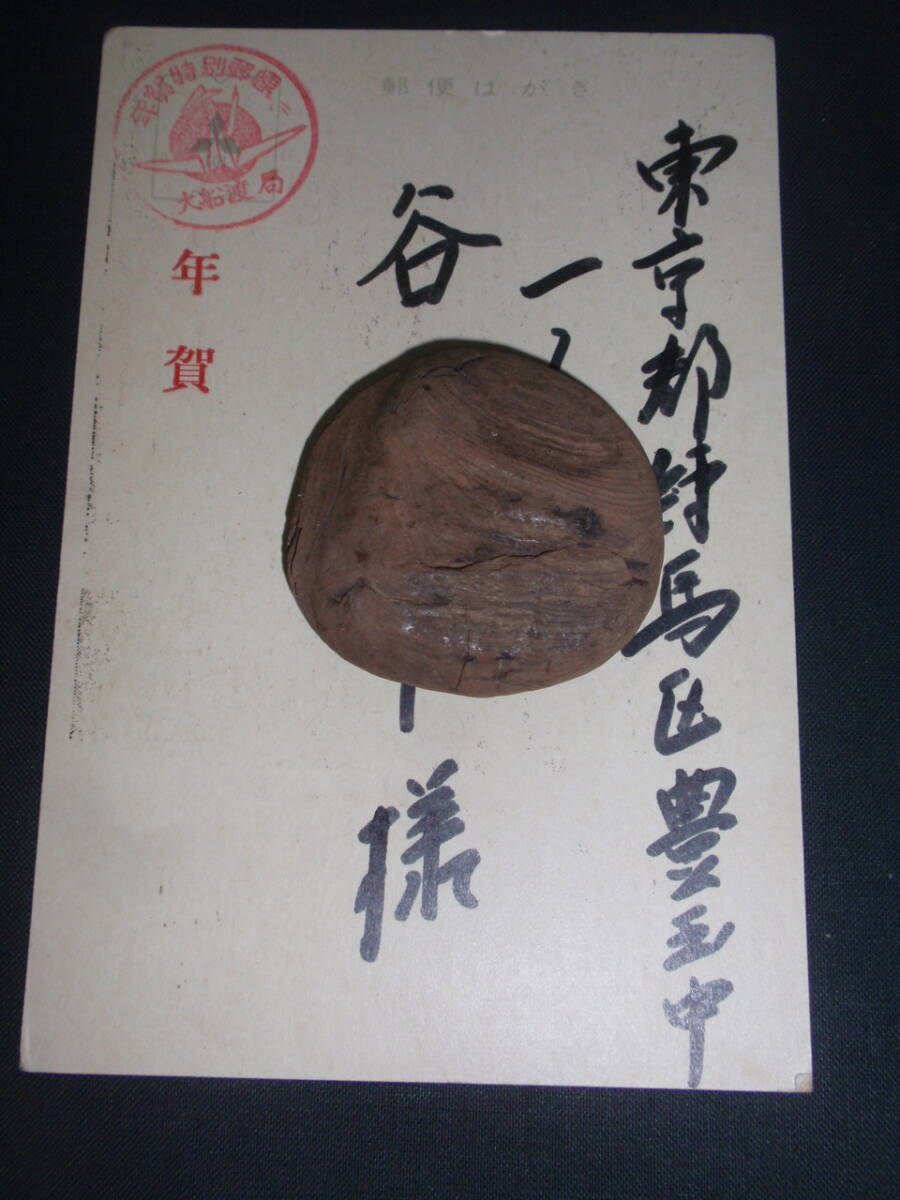 年賀特別郵便
大船渡局
年賀
郵便はがき
東京都練馬区豊玉中
一
谷
様